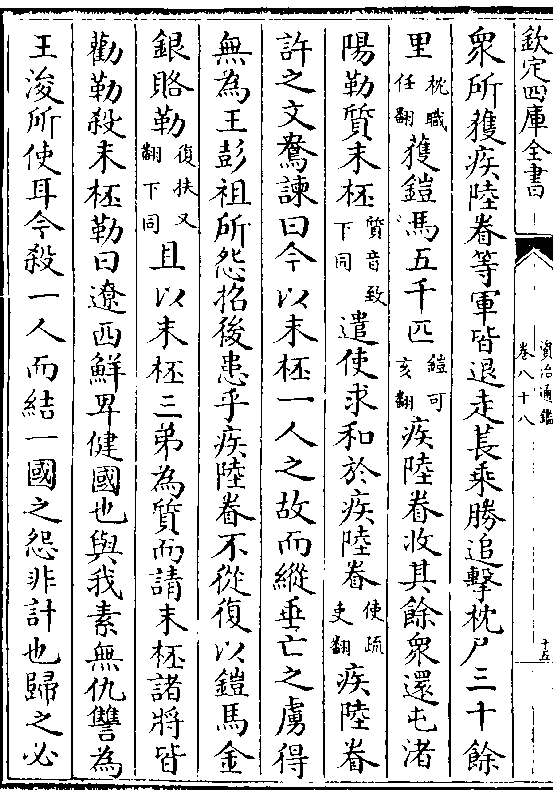 欽定四庫全書
資治通鑑
卷八十八
十五
衆所獲疾陸眷等軍皆退走萇乘勝追擊枕尸三十餘
里枕職任翻獲鎧馬五千匹鎧可亥翻疾陸眷收其餘衆還屯渚
陽勒質末柸質音致下同遣使求和於疾陸眷使疏吏翻疾陸眷
許之文鴦諫曰今以末柸一人之故而縱垂亡之虜得
無為王彭祖所怨招後患乎疾陸眷不從復以鎧馬金
銀賂勒復扶又翻下同且以末柸三弟為質而請末柸諸將皆
勸勒殺末柸勒曰遼西鮮卑健國也與我素無仇讐為
王浚所使耳今殺一人而結一國之怨非計也歸之必